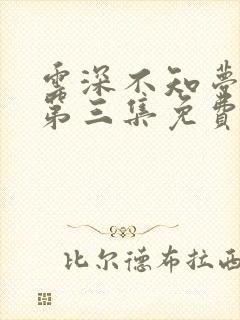 雲深不知夢
第三集免費
比尔德布拉西